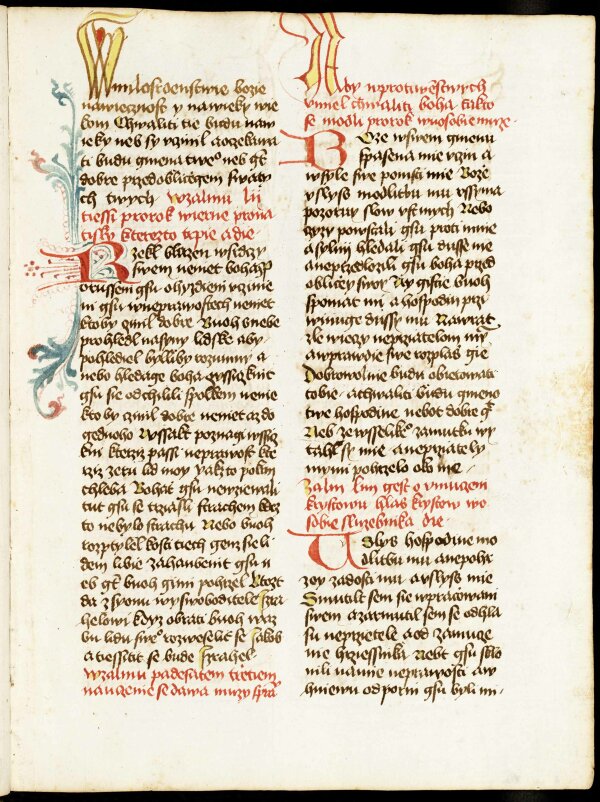 W milosrdenstwie bozie
nawiecznost y nawieky wie
kom Chwaliti tie budu naw
ieky neb sy vczinil aoczekawa
ti budu gmena tweo neb gt
dobre przedobliczegem swaty
ch twych wzalmu lii
tiessi prorok wierne prziwa
tisky kterezto tepie a die
Rzekl blazen wsrdczy
swem nenet boha
otusseni gsu ohyzdieni vczinie
ni gsu wneprawostech nenet
ktoby czinil dobre Buoh snebe
pohledl nasyny lidske aby
pohlediel bylliby rozumny a
nebo hledage boha wssiczknit
gsu sie odchilili spolkem nenie
kto by czinil dobre nemet az do
gednoho Wssakt poznagi wssicz
kni kterziz passi neprawost kte
rziz zeru lid moy yakzto pokrm
chleba Bohat gsu newziewali
tut gsu se trzasli strachem kdez
to nebylo strachu Nebo buoh
rozptylel kosti tiech genz se li
dem libie zahanbenit gsu n
eb gt buoh gimi pohrzel Kdozt
da zsyonu wyswoboditele Izra
helowi kdyz obrati buoh wiaz
bu lidu sweo rozweselit se Jakob
a tiessiti se bude Izrahel
wzalmu padesatem trzetiem
nauczenie se dawa muzy spra
Aby wprotiwenstwych
vmiel chwaliti boha takto
se modli prorok wuosobie mirze
Boze wswem gmenu
spasena mie vczin a
wsyle swe pomsti mie Boze
vslyss modlitbu mu vssyma
pozoruy slow vst mych Nebo
czyzy powstali gsu proti mnie
a sylni hledali gsu dusse me
a neprzedlozili gsu boha przed
obliczey swoy Ay gistie buoh
spomat mi a hospodin przi
winuge dussy mu Nawrat
zle wieczy neprzatelom my
a wprawdie swe rozplas gie
Dobrowolnie budu obietowati
tobie a chwaliti budu gmeno
twe hospodine nebot dobre gt
Neb ze wsselikeo zamutku wy
tahl sy mie a neprzately
mymi pohrzelo oko me
zalm liiii gest o vmuczeni
krystowu hlas krystow wo
sobie sluzebnika die
Vslyss hospodine mo
dlitbu mu a nepohrz
zey zadosti mu a vslyss mie
Smutilt sem sie wpracowani
swem a zarmutil sem se od hla
su neprzietele a od zamuce
nie hrziessnika Nebt gsu sklo
nili namie neprawosti a w
hniewu odporni gsu byli mi